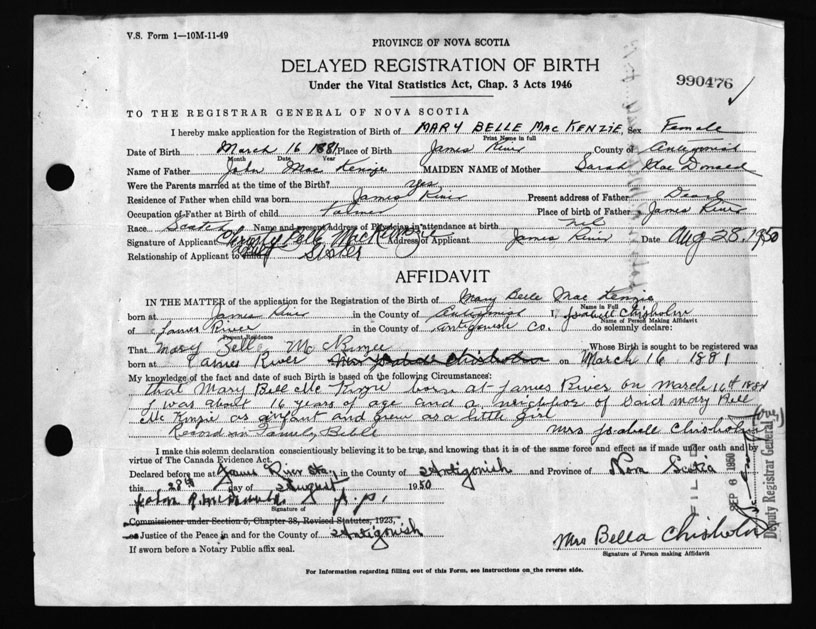 V.S. Form 1—10M-11-49
PROVINCE OF NOVA SCOTIA
DELAYED REGISTRATION OF BIRTH
Under the Vital Statistics Act, Chap. 3 Acts 1946
990476
TO THE REGISTRAR GENERAL OF NOVA SCOTIA
I hereby make application for the Registration of Birth of MARY BELLE MAC KENZIE, Sex Female
Print Name in full
Date of Birth March 16 1881 Place of Birth James River County of Antigonish
Month Date Year
Name of Father John Mac Kenzie MAIDEN NAME of Mother Sarah Mac Donald
Were the Parents married at the time of the Birth? Yes
Residence of Father when child was born James River Present address of Father Dead
Occupation of Father at Birth of child Farmer Place of birth of Father James River
Race Scotch Name and present address of Physician in attendance at birth nil
Signature of Applicant Christy Belle MacKenzie Address of Applicant James River Date Aug 28, 1950
Relationship of Applicant to child Sister
AFFIDAVIT
IN THE MATTER of the application for the Registration of the Birth of Mary Belle Mac Kenzie
Name in Full
born at James River in the County of Antigonish I, Isabell Chisholm
Name of Person Making Affidavit
of James River in the County of Antigonish Co. do solemnly declare:
Present Residence
That Mary Belle McKinzie Whose Birth is sought to be registered was
born at James River Mrs Isabell Chisholm on March 16 1881
My knowledge of the fact and date of such Birth is based on the following Circumstances:
that Mary Bell Mc Kinzie born at James River on March 16th 1881
I was about 16 years of age and a neighbor of said Mary Bell
Mc Kinzie as infant and grew as a little girl
Record in Family Bible Mrs Isabell Chisholm
I make this solemn declaration conscientiously believing it to be true, and knowing that it is of the same force and effect as if made under oath and by
virtue of The Canada Evidence Act.
Declared before me at James River Sta. in the County of Antigonish and Province of Nova Scotia
this 28th day of August 1950
J.P.
Signature of
Commissioner under Section 5, Chapter 38, Revised Statutes, 1923,
or Justice of the Peace in and for the County of Antigonish
If sworn before a Notary Public affix seal.
Mrs Bella Chisholm
Signature of Person making Affidavit
FILED
SEP 6 1950
Deputy Registrar General
For Information regarding filling out of this Form, see instructions on the reverse side.